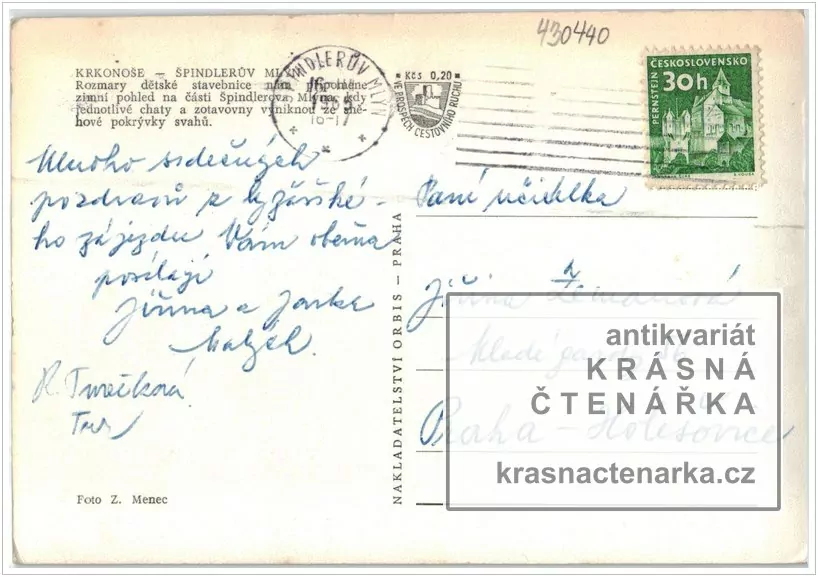 430440
KRKONOŠE — ŠPINDLERŮV MLÝN
Rozmary dětské stavebnice nám připomene
zimní pohled na části Špindlerova Mlýna, kdy
jednotlivé chaty a zotavovny vyniknou ze sně-
hové pokrývky svahů.
ŠPINDLERŮV MLÝN
16-17
Kčs 0,20
VE PROSPĚCH CESTOVNÍHO RUCHU
ČESKOSLOVENSKO
30h
PERNŠTEJN
Mnoho srdečných
pozdravů z lyžařské-
ho zájezdu Vám oběma
posílají
Jiřina a Jarka
R. Turečková
Paní učitelka
Jiřina Zemanová
Mladé gardy
Praha - Holešovice
NAKLADATELSTVÍ ORBIS — PRAHA
Foto Z. Menec
antikvariát
KRÁSNÁ
ČTENÁŘKA
krasnactenarka.cz